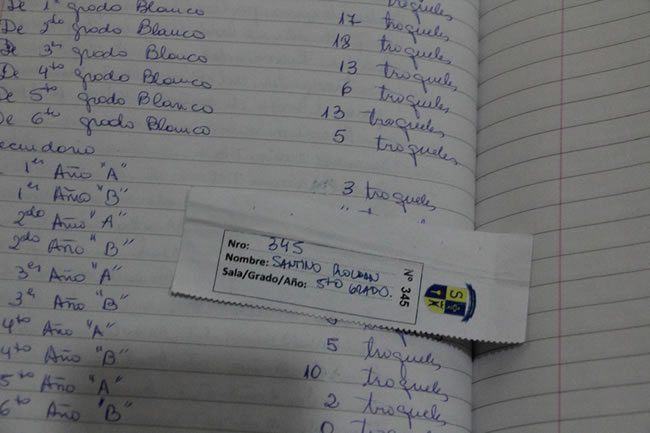 De 1º grado Blanco 17 troqueles
De 2do grado Blanco 18 troqueles
De 3er grado Blanco 13 troqueles
De 4to grado Blanco 6 troqueles
De 5to grado Blanco 13 troqueles
De 6to grado Blanco 5 troqueles
ecundario
1er Año "A" 3 troqueles
1er Año "B"
2do Año "A"
2do Año "B"
3er Año "A"
3er Año "B"
4to Año "A" 5 troqueles
4to Año "B" 10 troqueles
5to Año "A" 2 troqueles
6to Año "B" 0
Nro: 345
Nombre: SANTINO ROLDAN
Sala/Grado/Año: 5to GRADO.
Nº 345